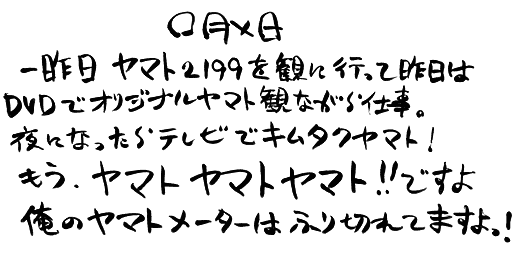 〇月×日
一昨日 ヤマト2199を観に行って昨日は
DVDでオリジナルヤマト観ながら仕事。
夜になったらテレビでキムタクヤマト!
もう、ヤマトヤマトヤマト!!ですよ
俺のヤマトメーターはふり切れてますよっ!